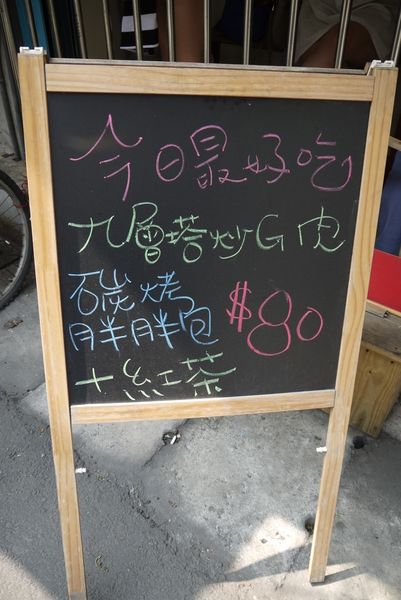 今日最好吃
九層塔炒G肉
碳烤
胖胖包 $80
+紅茶